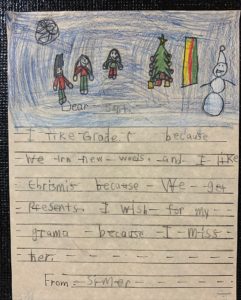 Dear Santa
I like Grade 1 because
We lrn new words. and I like
Chrismis because We get
Presents. I wish for my
grama because I miss
her.
From